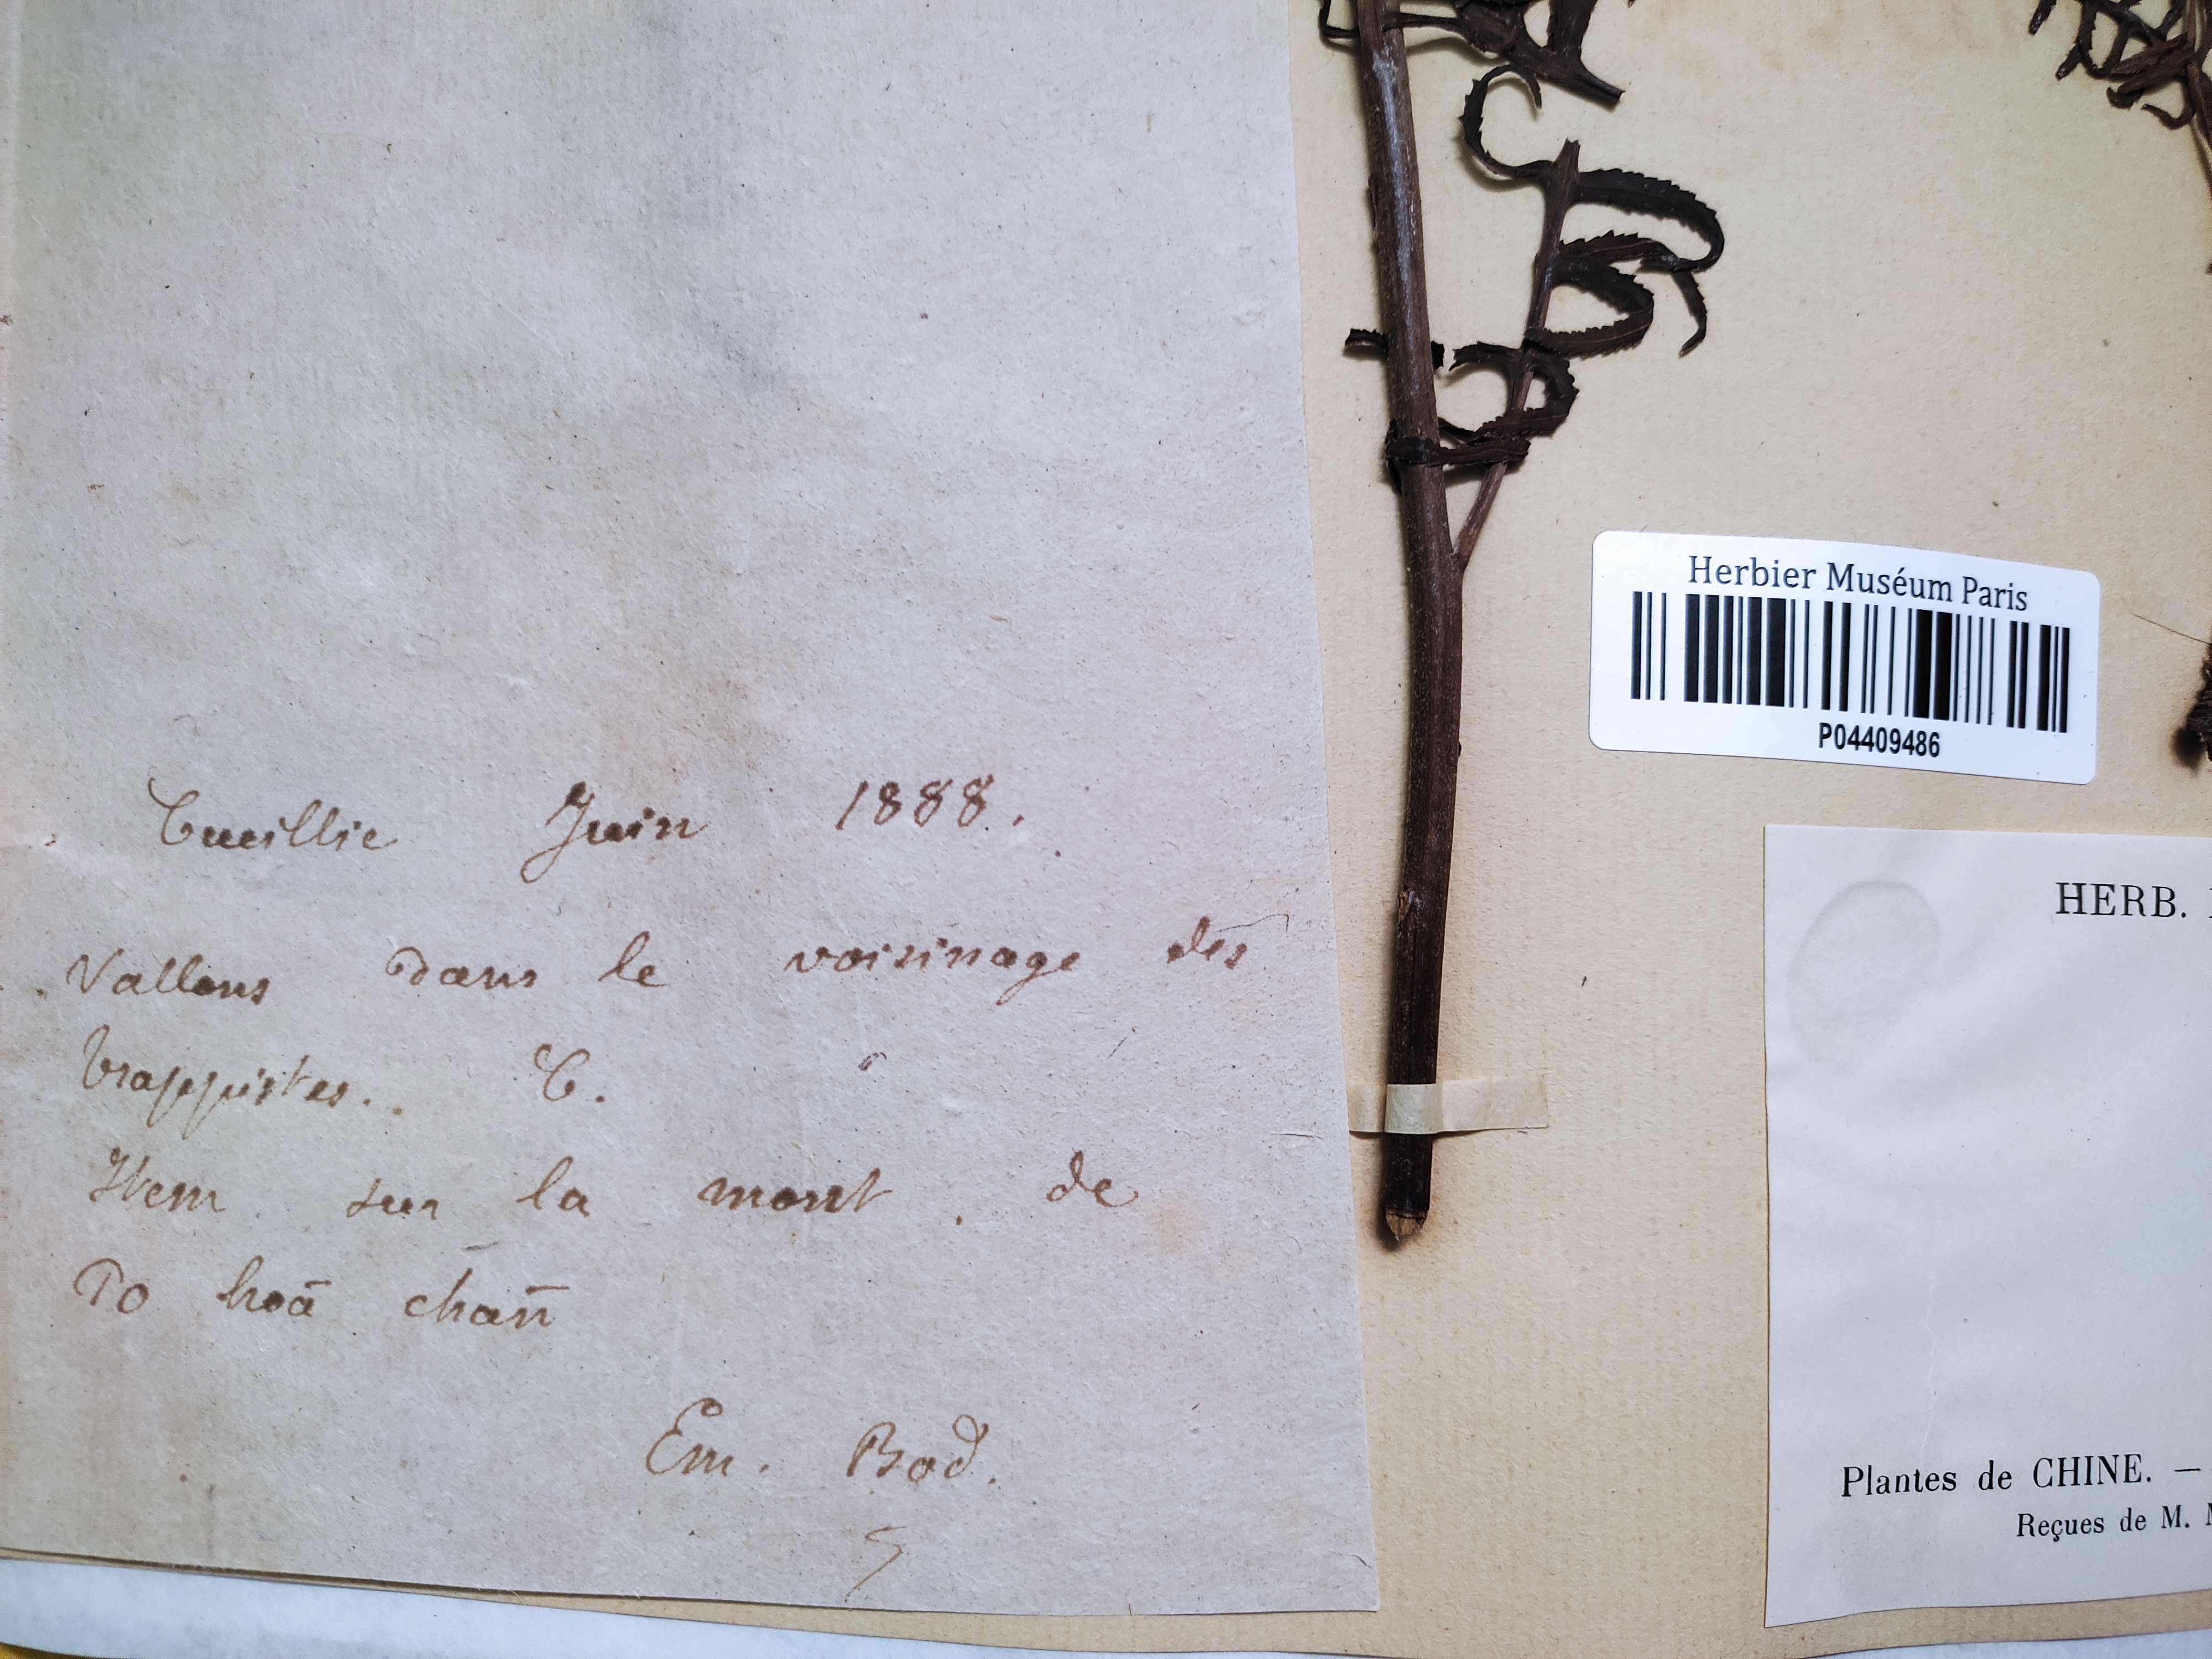 Cueillie Juin 1888.
Vallons dans le voisinage des
trappistes. C.
Item sur la mont. de
To hoā chañ
Em. Bod.
Herbier Muséum Paris
P04409486
HERB.
Plantes de CHINE. —
Reçues de M.